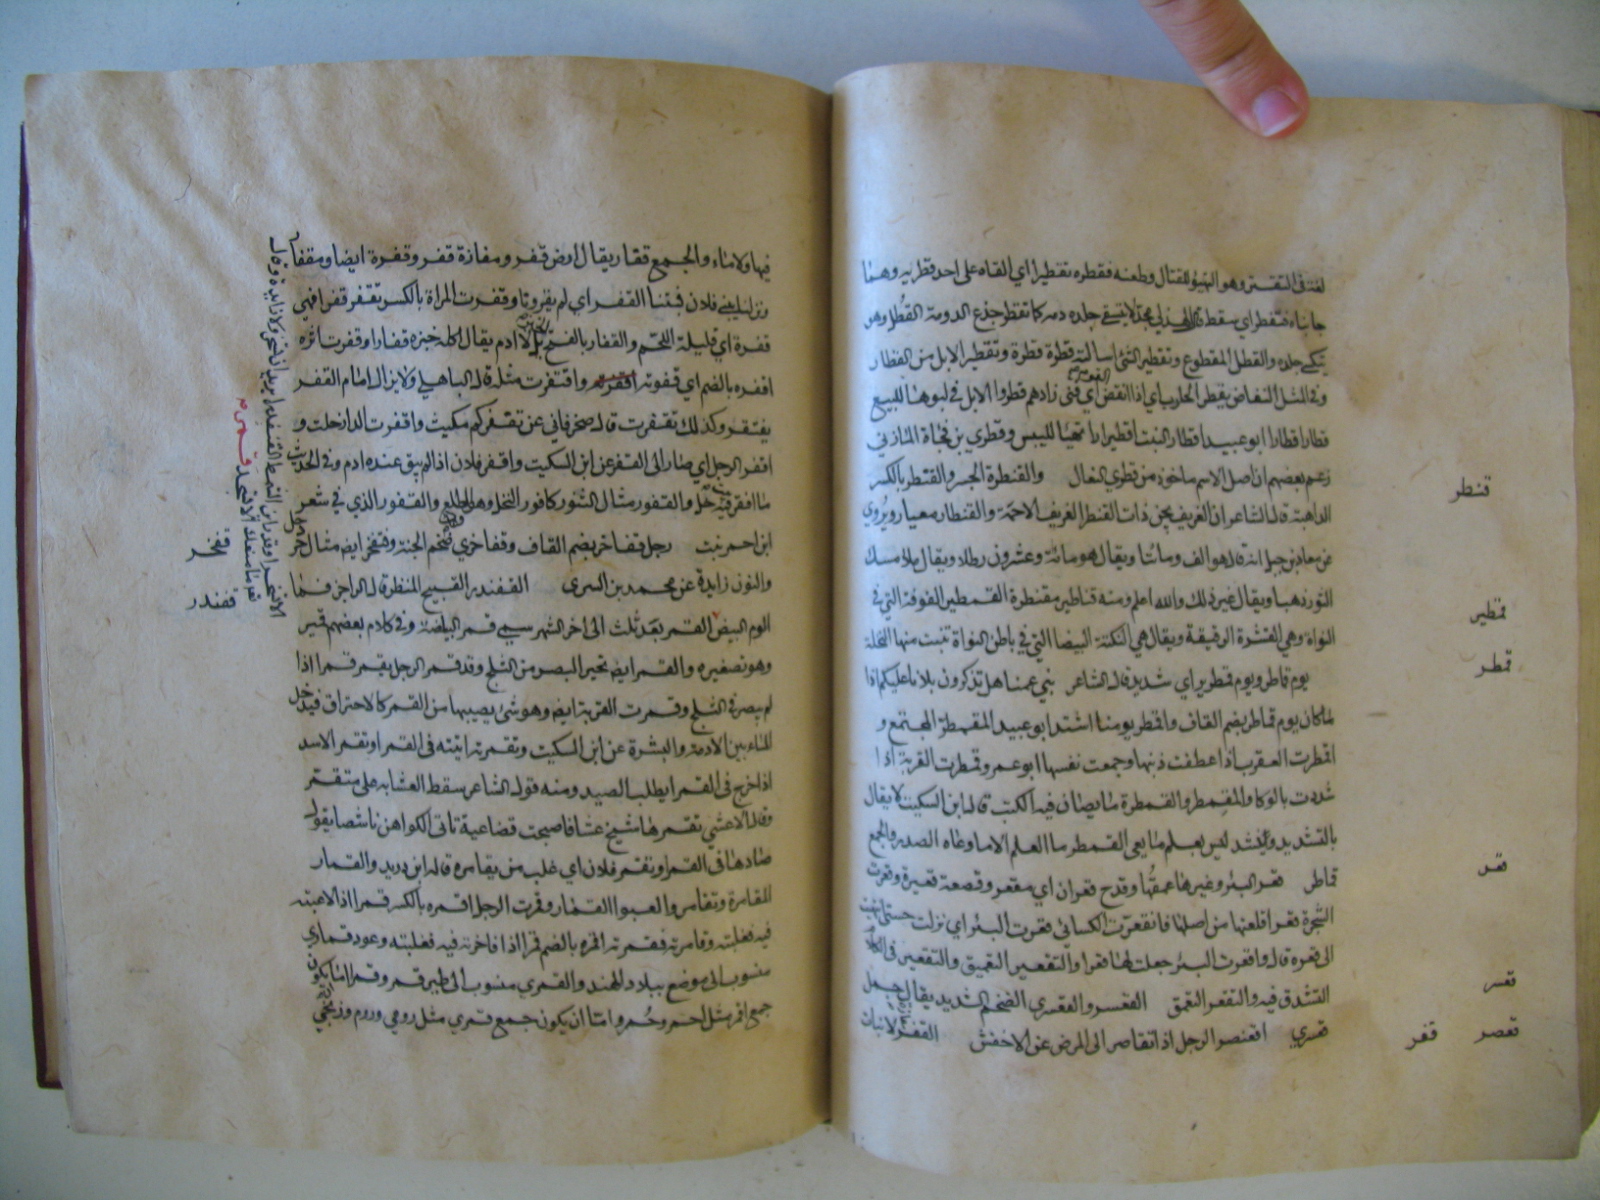 لغة في التقتر وهو التهيؤ للقتال وطعنه فقطره تقطيرا اي القاه على احد قطريه وهما
جانباه فتقطر اي سقط قال الهذلي مجدلا يتسقى جلده دمه كما تقطر جذع الدومة القطل وهو
جلده والقطل المقطوع وتقطير الشئ اسالته قطرة قطرة وتقطير الابل من القطار
وفي المثل النفاض يقطر الجلب اي اذا انفض اي فنى زادهم قطروا الابل للبيع
قطارا قطارا ابو عبيد اقطار النبت اقطيرارا تهيأ لليبس وقطري بن فجاة المازني
زعم بعضهم ان اصل الاسم ماخوذ من قطري النعال والقنطرة الجسر والقنطر بالكسر
الداهية قال الشاعر ان الغريف يجن ذات القنطر الغريف الاجمة والقنطار معيار ويروى
عن معاذ بن جبل انه قال هو الف ومائتا ويقال هو مائة وعشرون رطلا ويقال ملا مسك
الثور ذهبا ويقال غير ذلك والله اعلم ومنه قناطير مقنطرة القطمير الفوفة التي في
النواة وهي القشرة الرقيقة ويقال هي النكتة البيضا التي في باطن النواة تنبت منها النخلة
يوم قماطر ويوم قمطرير اي شديد قال الشاعر بني عمنا هل تذكرون بلانا عليكم اذا
ماكان يوم قماطر بضم القاف واقمطر يومنا اشتد ابو عبيد المقمطر المجتمع و
اقمطرت العقرب اذا عطفت ذنبها وجمعت نفسها ابو عمرو قمطرت القربة اذا
شددت بالوكاء والقمطر والقمطرة ما يصان فيه الكتب قال ابن السكيت لا يقال
بالتشديد وينشد ليس بعلم ما يعي القمطر ما العلم الا ما وعاه الصدر والجمع
قماطر قعر البئر وغيرها عمقها وقدح قعران اي مقعر وقصعة قعيرة وقعرت
الشجرة قعرا قلعتها من اصلها فانقعرت الكسائي قعرت البئر اي نزلت حتى انتهيت
الى قعره قال واقعرت البئر جعلت لها قعرا والتقعير التعميق والتقعير في الكلام
التشدق فيه والتقعر التعمق القعسر والقعسري الضخم الشديد يقال جمل
قعسري اقعنصر الرجل اذا تقاصر الى الارض عن الاخفش القفر لا نبات
قنطر
قمطير
قمطر
قعر
قعسر
قعصر قفر
فيها ولا ماء والجمع قفار يقال ارض قفر ومفازة قفر وقفرة ايضا ومقفار
ونزلنا ببني فلان فبتنا القفر اي لم يقرونا وقفرت المراة بالكسر تقفر قفرا فهي
قفرة اي قليلة اللحم والقفار بالفتح الخبز بلا ادم يقال اكل خبزه قفارا وقفرت اثره
اقفره بالضم اي قفوته واقتفرت مثله قال الباهلي ولا يزال امام القفر
يقتفر وكذلك تقفرت قال صخر فاني عن تقفركم مكيث واقفرت الدار خلت و
اقفر الرجل اي صار الى القفر عن ابن السكيت واقفر فلان اذا لم يبق عنده ادم وفي الحديث
ما اقفر بيت فيه خل والقفور مثال التنور كافور النخل وهو الطلع والقفور الذي في شعر
ابن احمر نبت رجل قفاخر بضم القاف وقفاخري ضخم الجثة وقنفخر ايضا مثال جردحل
والنون زايدة عن محمد بن السرى القفندر القبيح المنظر قال الراجز فما
الوم البيض القمر بعد ثلث الى اخر الشهر سمي قمر البياضه وفي كلام بعضهم قمير
وهو تصغيره والقمر ايضا تحير البصر من الثلج وقد قمر الرجل يقمر قمرا اذا
لم يبصر في الثلج وقمرت القربة ايضا وهو شئ يصيبها من القمر كالاحتراق فيدخل
الماء بين الادمة والبشرة عن ابن السكيت وتقمرته اتيته في القمرا وتقمر الاسد
اذا خرج في القمرا يطلب الصيد ومنه قول الشاعر سقط العشا به على متقمر
وقال الاعشى تقمرها شيخ عشا فاصبحت قضاعية تاتي الكواهن ناشصا يقول
صادها في القمرا وتقمر فلان اي غلب من يقامره قاله ابن دريد والقمار
المقامرة وتقامروا لعبوا القمار وقمرت الرجل اقمره بالكسر قمرا اذا لاعبته
فيه فغلبته وقامرته فقمرته اقمره بالضم قمرا اذا فاخرته فيه فغلبته وعود قماري
منسوب الى موضع ببلاد الهند والقمري منسوب الى طير قمر وقمر اما ان يكون
جمع اقمر مثل احمر وحمر واما ان يكون جمع قمري مثل رومي وروم وزنجي
قفخر
قفندر